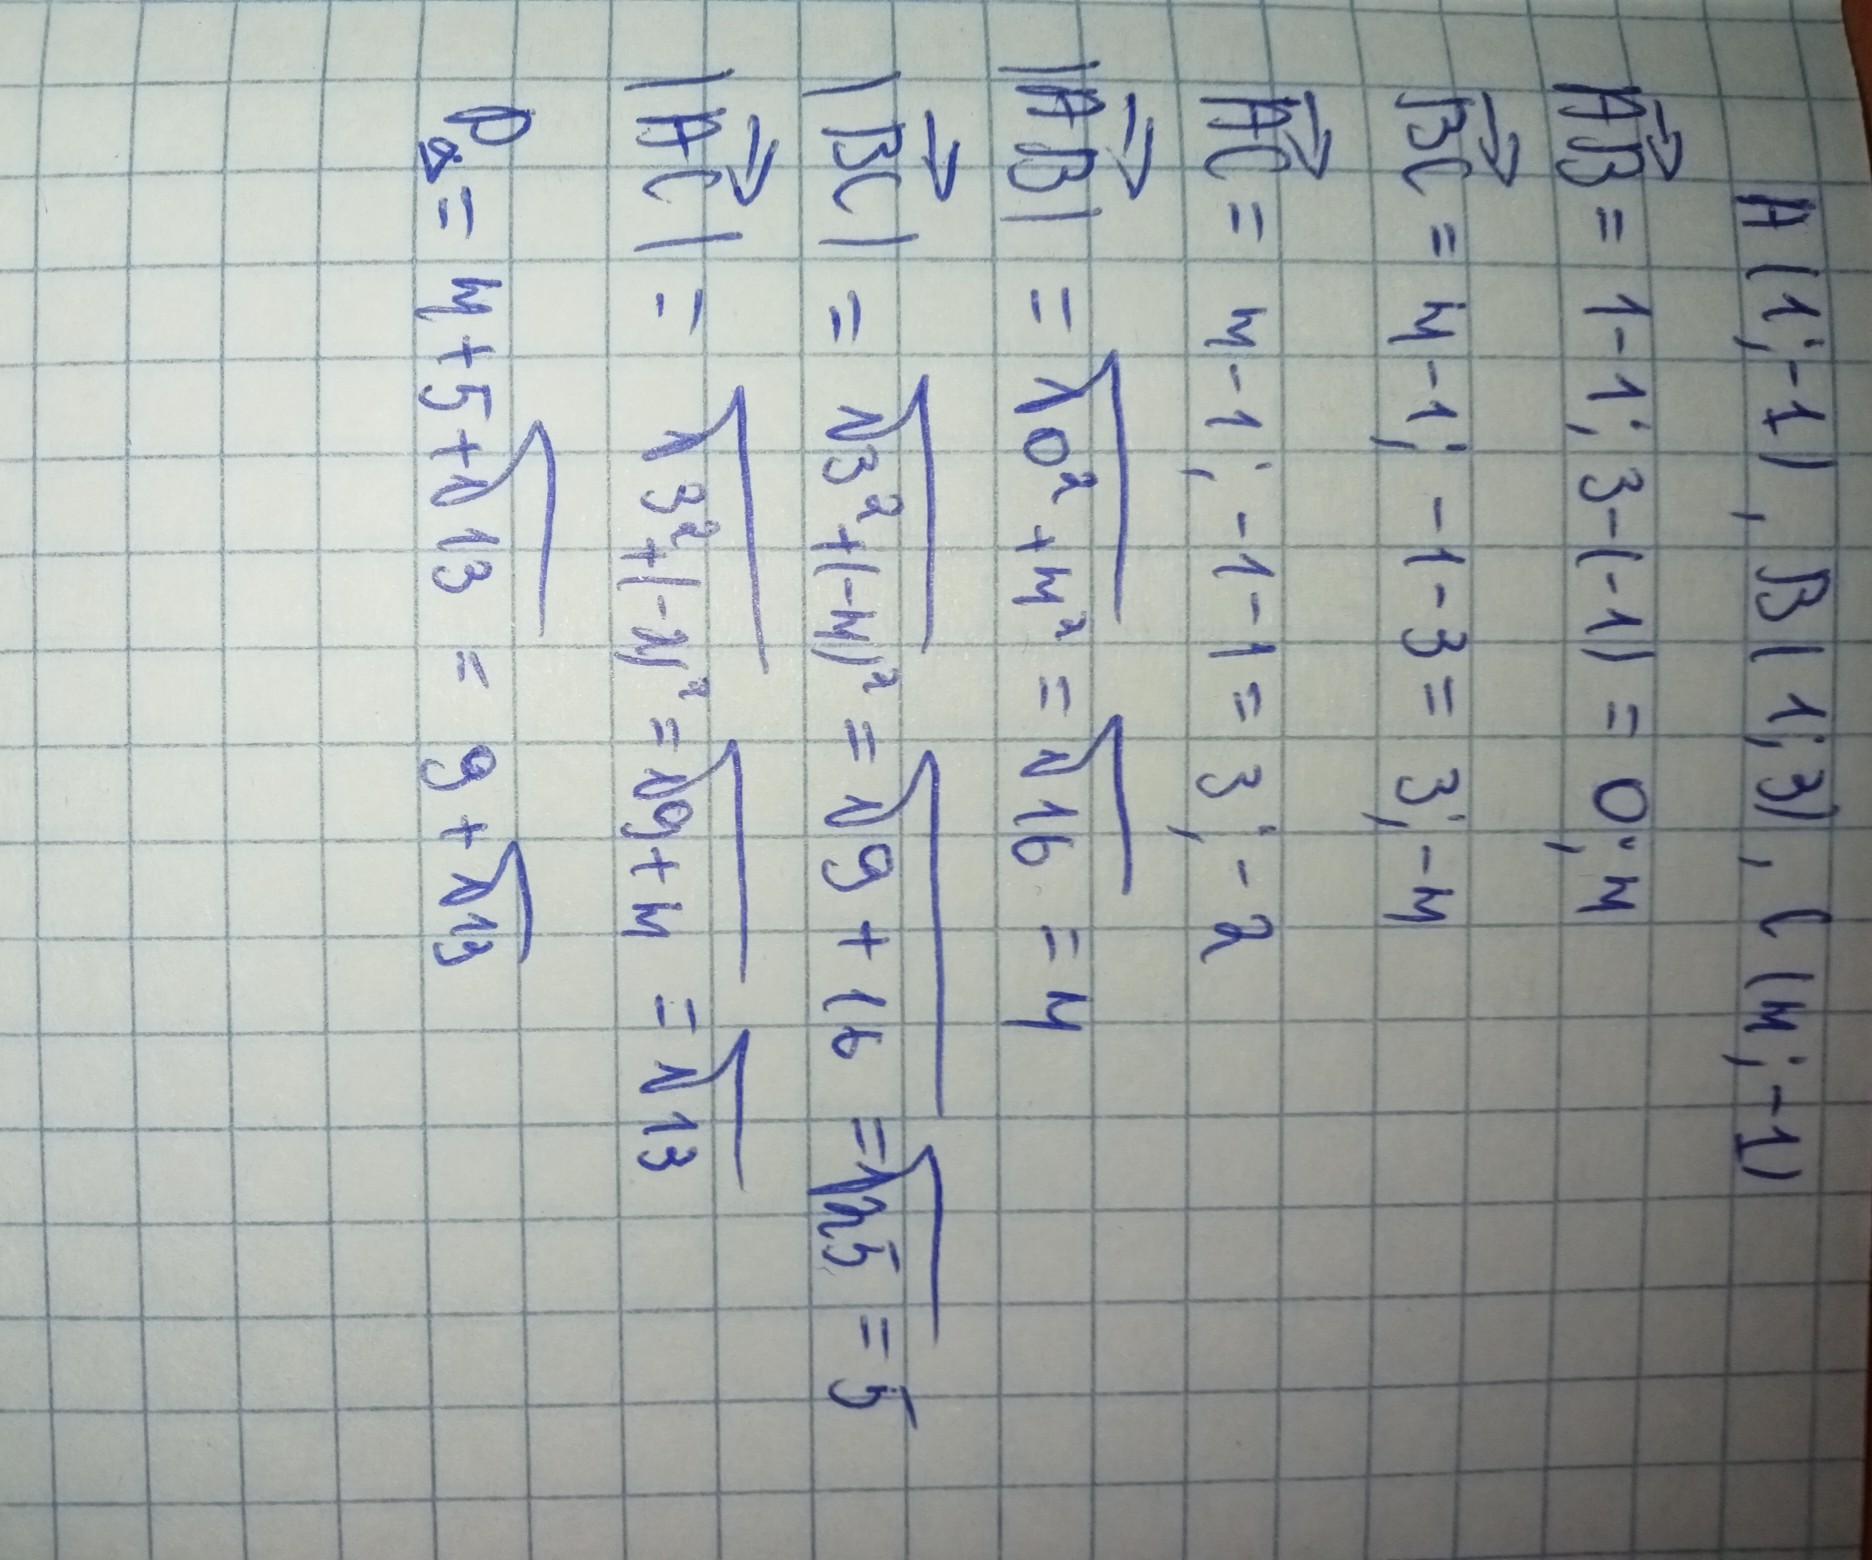 A(1;-1), B(1;3), C(4;-1)
AB→ = 1-1; 3-(-1) = 0; 4
BC→ = 4-1; -1-3 = 3; -4
AC→ = 4-1; -1-1 = 3; -2
|AB→| = √0² + 4² = √16 = 4
|BC→| = √3² + (-4)² = √9 + 16 = √25 = 5
|AC→| = √3² + (-2)² = √9+4 = √13
P△ = 4+5+√13 = 9+√13